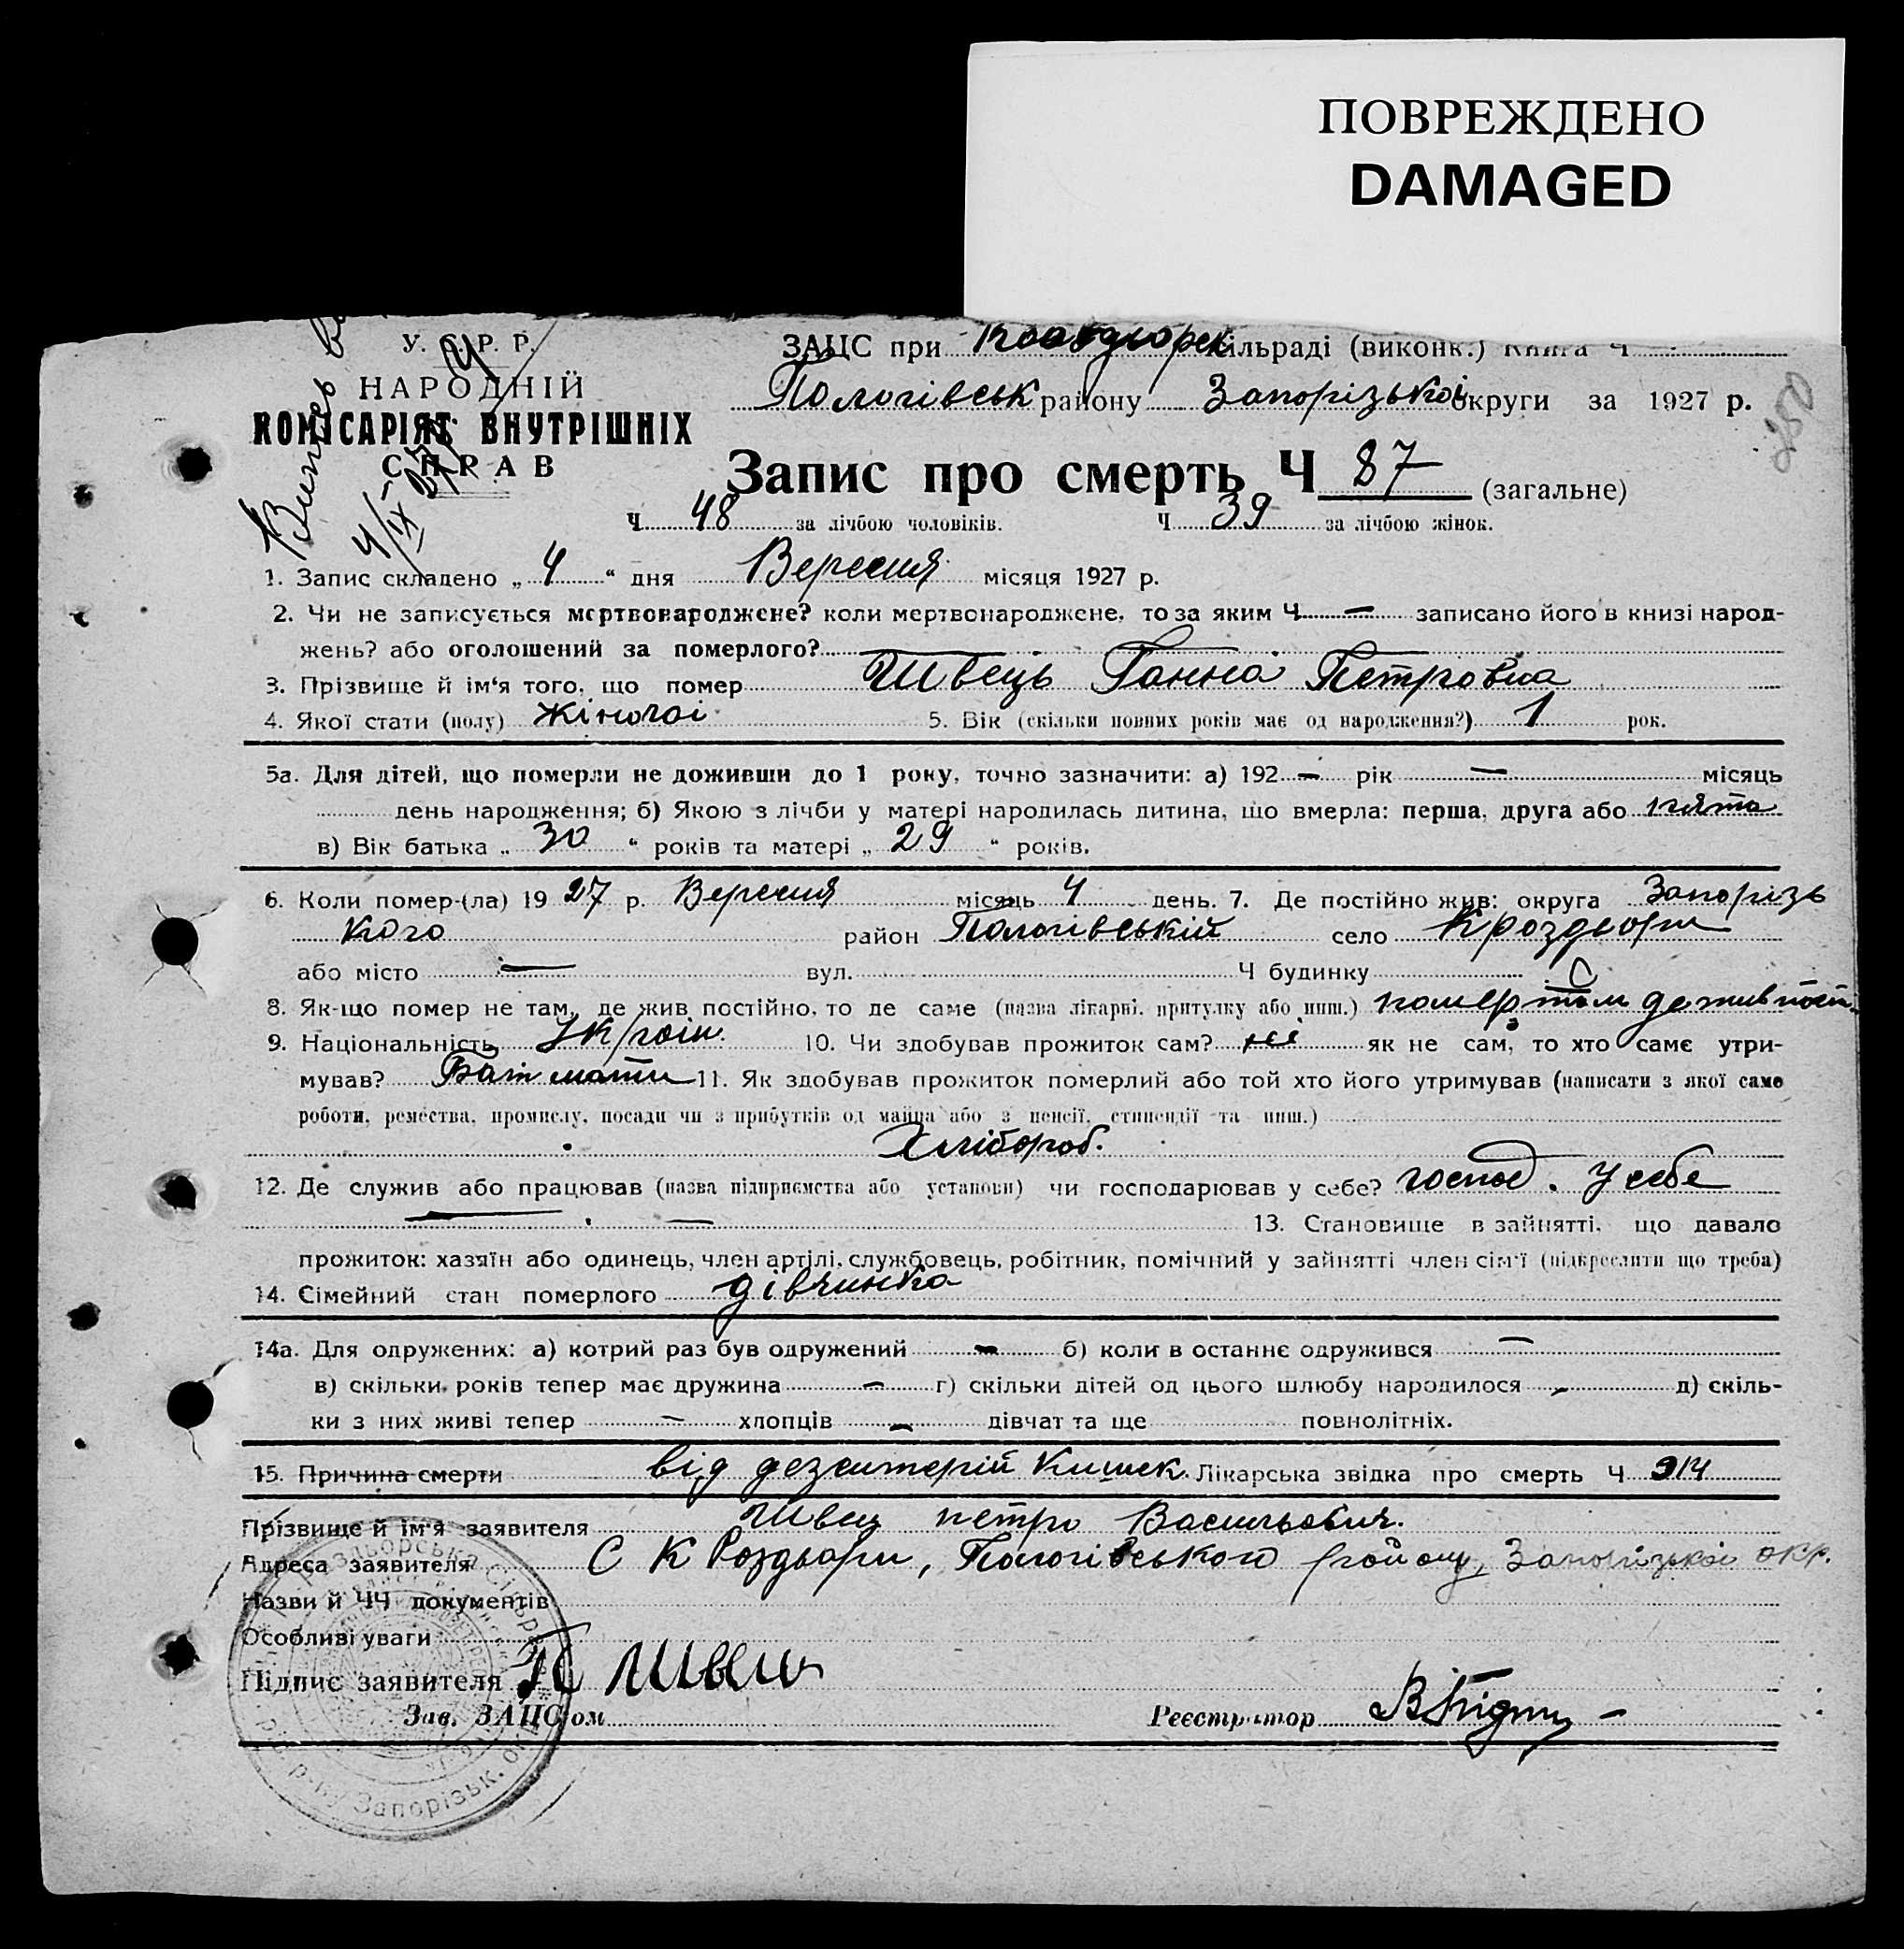 ПОВРЕЖДЕНО
DAMAGED
У. С. Р. Р.
НАРОДНІЙ
КОМІСАРІЯТ ВНУТРІШНІХ
СПРАВ
ЗАЦС при сільраді (виконк.) Книга Ч
Пологівськ району Запорізької округи за 1927 р.
Запис про смерть Ч 87 (загальне)
Ч 48 за лічбою чоловіків. Ч 39 за лічбою жінок.
1. Запис складено „ 4 “ дня Вересня місяця 1927 р.
2. Чи не записується мертвонароджене? коли мертвонароджене, то за яким Ч — записано його в книзі народ-
жень? або оголошений за померлого?
3. Прізвище й ім‘я того, що помер Швець Ганна Петровна
4. Якої стати (полу) Жіночої 5. Вік (скільки повних років має од народження?) 1 рок.
5а. Для дітей, що померли не доживши до 1 року, точно зазначити: а) 192 — рік — місяць
день народження; б) Якою з лічби у матері народилась дитина, що вмерла: перша, друга або пята
в) Вік батька „ 30 “ років та матері „ 29 “ років.
6. Коли помер-(ла) 19 27 р. Вересня місяць 4 день. 7. Де постійно жив: округа Запорізь
кого район Пологівській село Кроздори
або місто — вул. Ч будинку
8. Як-що помер не там, де жив постійно, то де саме (назва лікарні, притулку або инш.) помер там де жив
9. Національність Україн. 10. Чи здобував прожиток сам? ні як не сам, то хто саме утри-
мував? Бат мати 11. Як здобував прожиток померлий або той хто його утримував (написати з якої саме
роботи, ремества, промислу, посади чи з прибутків од майна або з пенсії, стипендії та инш.)
Хлібороб.
12. Де служив або працював (назва підприємства або установи) чи господарював у себе? господ. у себе
— — 13. Становище в зайнятті, що давало
прожиток: хазяїн або одинець, член артілі, службовець, робітник, помічний у зайнятті член сім‘ї (підкреслити що треба)
14. Сімейний стан померлого дівчинка
14а. Для одружених: а) котрий раз був одружений — б) коли в останнє одружився —
в) скільки років тепер має дружина — г) скільки дітей од цього шлюбу народилося — д) скіль-
ки з них живі тепер — хлопців — дівчат та ще повнолітніх.
15. Причина смерти від дезентерій кишек. Лікарська звідка про смерть Ч 914
Прізвище й ім‘я заявителя Швец петро Васильович.
Адреса заявителя С К Роздьори, Пологівського району, Запорізької окр.
Назви й ЧЧ документів
Особливі уваги
Підпис заявителя П Швець
Зав. ЗАЦС‘ом Реєстратор
р-ну Запорізьк.